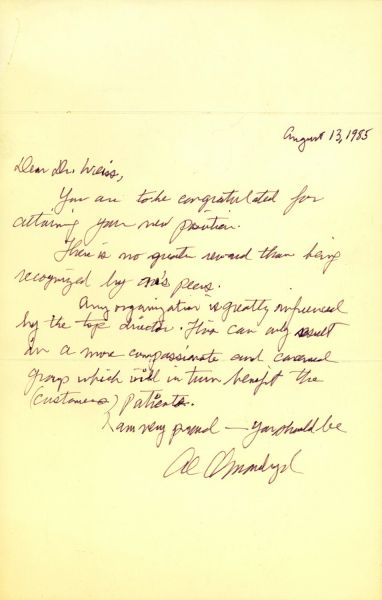 August 13, 1985
Dear Dr. Weiss,
You are to be congratulated for
attaining your new position.
There is no greater reward than being
recognized by one's peers.
Any organization is greatly influenced
by the top director. This can only result
in a more compassionate and concerned
group which will in turn benefit the
(customers) patients.
I am very proud — you should be
Al